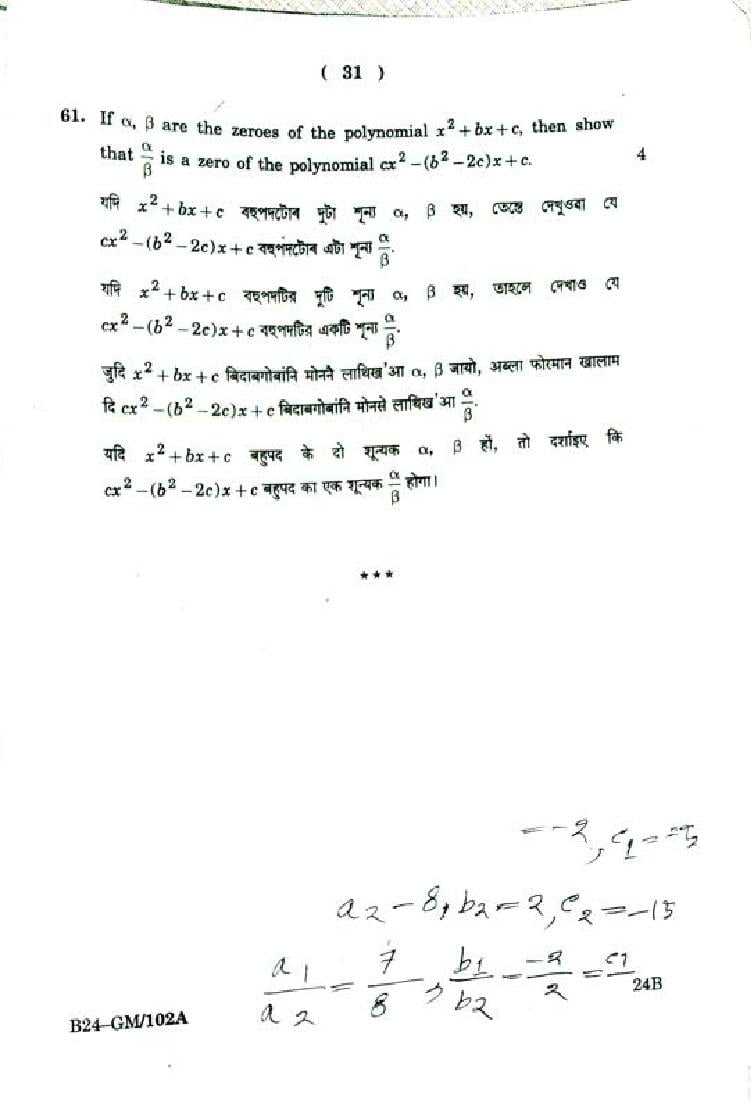 ( 31 )
61. If α, β are the zeroes of the polynomial x² + bx + c, then show
that α/β is a zero of the polynomial cx² – (b² – 2c)x + c. 4
যদি x² + bx + c বহুপদটোৰ দুটা শূন্য α, β হয়, তেন্তে দেখুওবা যে
cx² – (b² – 2c)x + c বহুপদটোৰ এটা শূন্য α/β.
যদি x² + bx + c বহুপদটির দুটি শূন্য α, β হয়, তাহলে দেখাও যে
cx² – (b² – 2c)x + c বহুপদটির একটি শূন্য α/β.
जुदि x² + bx + c बिदाबगोबांनि मोननै लाथिख'आ α, β जायो, अब्ला फोरमान खालाम
दि cx² – (b² – 2c)x + c बिदाबगोबांनि मोनसे लाथिख'आ α/β.
यदि x² + bx + c बहुपद के दो शून्यक α, β हों, तो दर्शाइए कि
cx² – (b² – 2c)x + c बहुपद का एक शून्यक α/β होगा।
★★★
= -2, c₁ =
a₂ - 8, b₂ = 2, c₂ = -15
a₁/a₂ = 7/8, b₁/b₂ = -2/2 = c₁
24B
B24–GM/102A